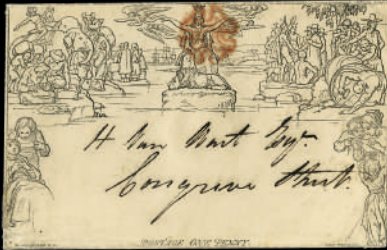 H Van Wart Esqr.
Congreve Street.
POSTAGE ONE PENNY.